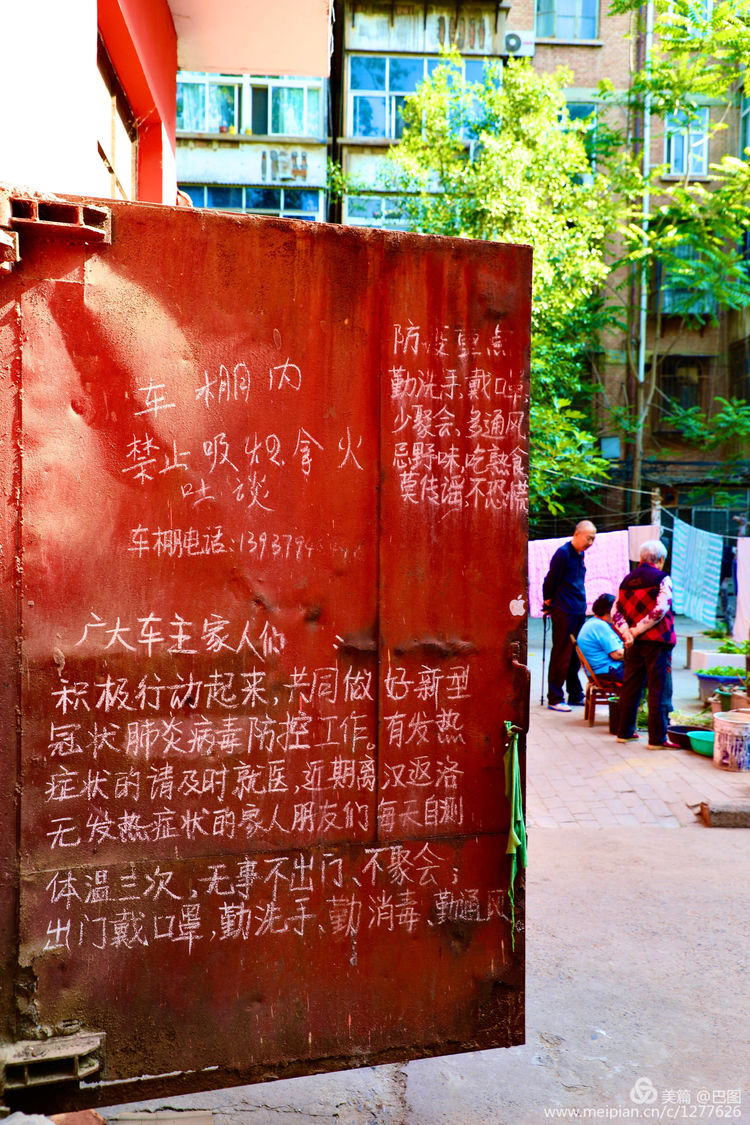 车棚内
禁止吸烟拿火
吐谈
车棚电话:1393794
防役重点
勤洗手、戴口罩、
少聚会、多通风
忌野味、吃熟食
莫传谣、不恐慌
广大车主家人们:
积极行动起来,共同做好新型
冠状肺炎病毒防控工作。有发热
症状的请及时就医,近期离汉返洛
无发热症状的家人朋友们每天自测
体温三次,无事不出门、不聚会;
出门戴口罩,勤洗手、勤消毒、勤通风
美篇 @巴图
www.meipian.cn/c/1277626